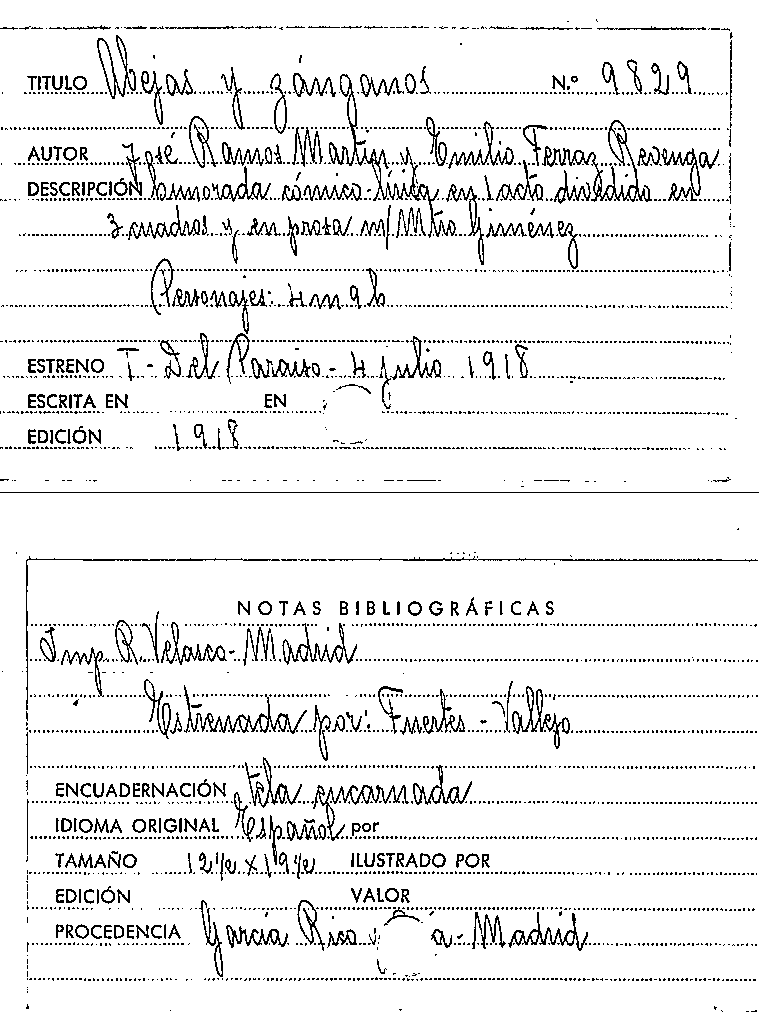 TITULO Abejas y zánganos N.º 9829
AUTOR José Ramos Martín y Emilio Ferraz Revenga
DESCRIPCIÓN humorada cómico-lírica en 1 acto dividido en
3 cuadros y en prosa m/ Mtro Giménez
Personajes: 4 m 9 h
ESTRENO T - Del Paraiso - 4 julio 1918
ESCRITA EN EN
EDICIÓN 1918
NOTAS BIBLIOGRÁFICAS
Imp R. Velasco - Madrid
Estrenada por: Fuertes - Vallejo
ENCUADERNACIÓN tela encarnada
IDIOMA ORIGINAL Español por
TAMAÑO ILUSTRADO POR
EDICIÓN VALOR
PROCEDENCIA García Rico y - Madrid